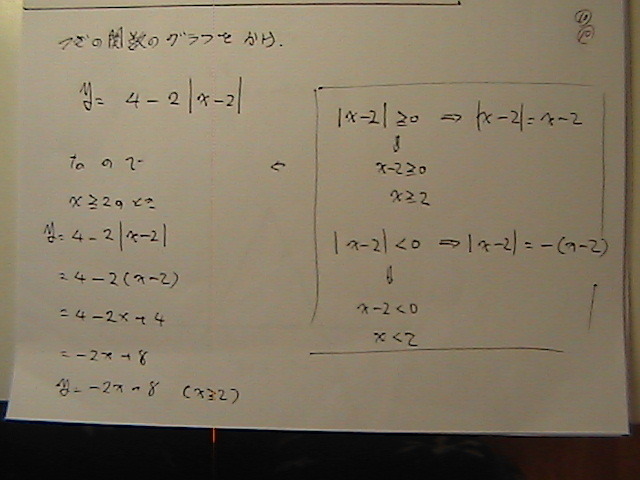 つぎの関数のグラフをかけ.
y = 4 - 2|x-2|
なので
x ≧ 2のとき
y = 4 - 2|x-2|
= 4 - 2(x-2)
= 4 - 2x + 4
= -2x + 8
y = -2x + 8 (x≧2)
←
|x-2| ≧ 0 ⇒ |x-2| = x-2
⇓
x-2 ≧ 0
x ≧ 2
|x-2| < 0 ⇒ |x-2| = -(x-2)
⇓
x-2 < 0
x < 2